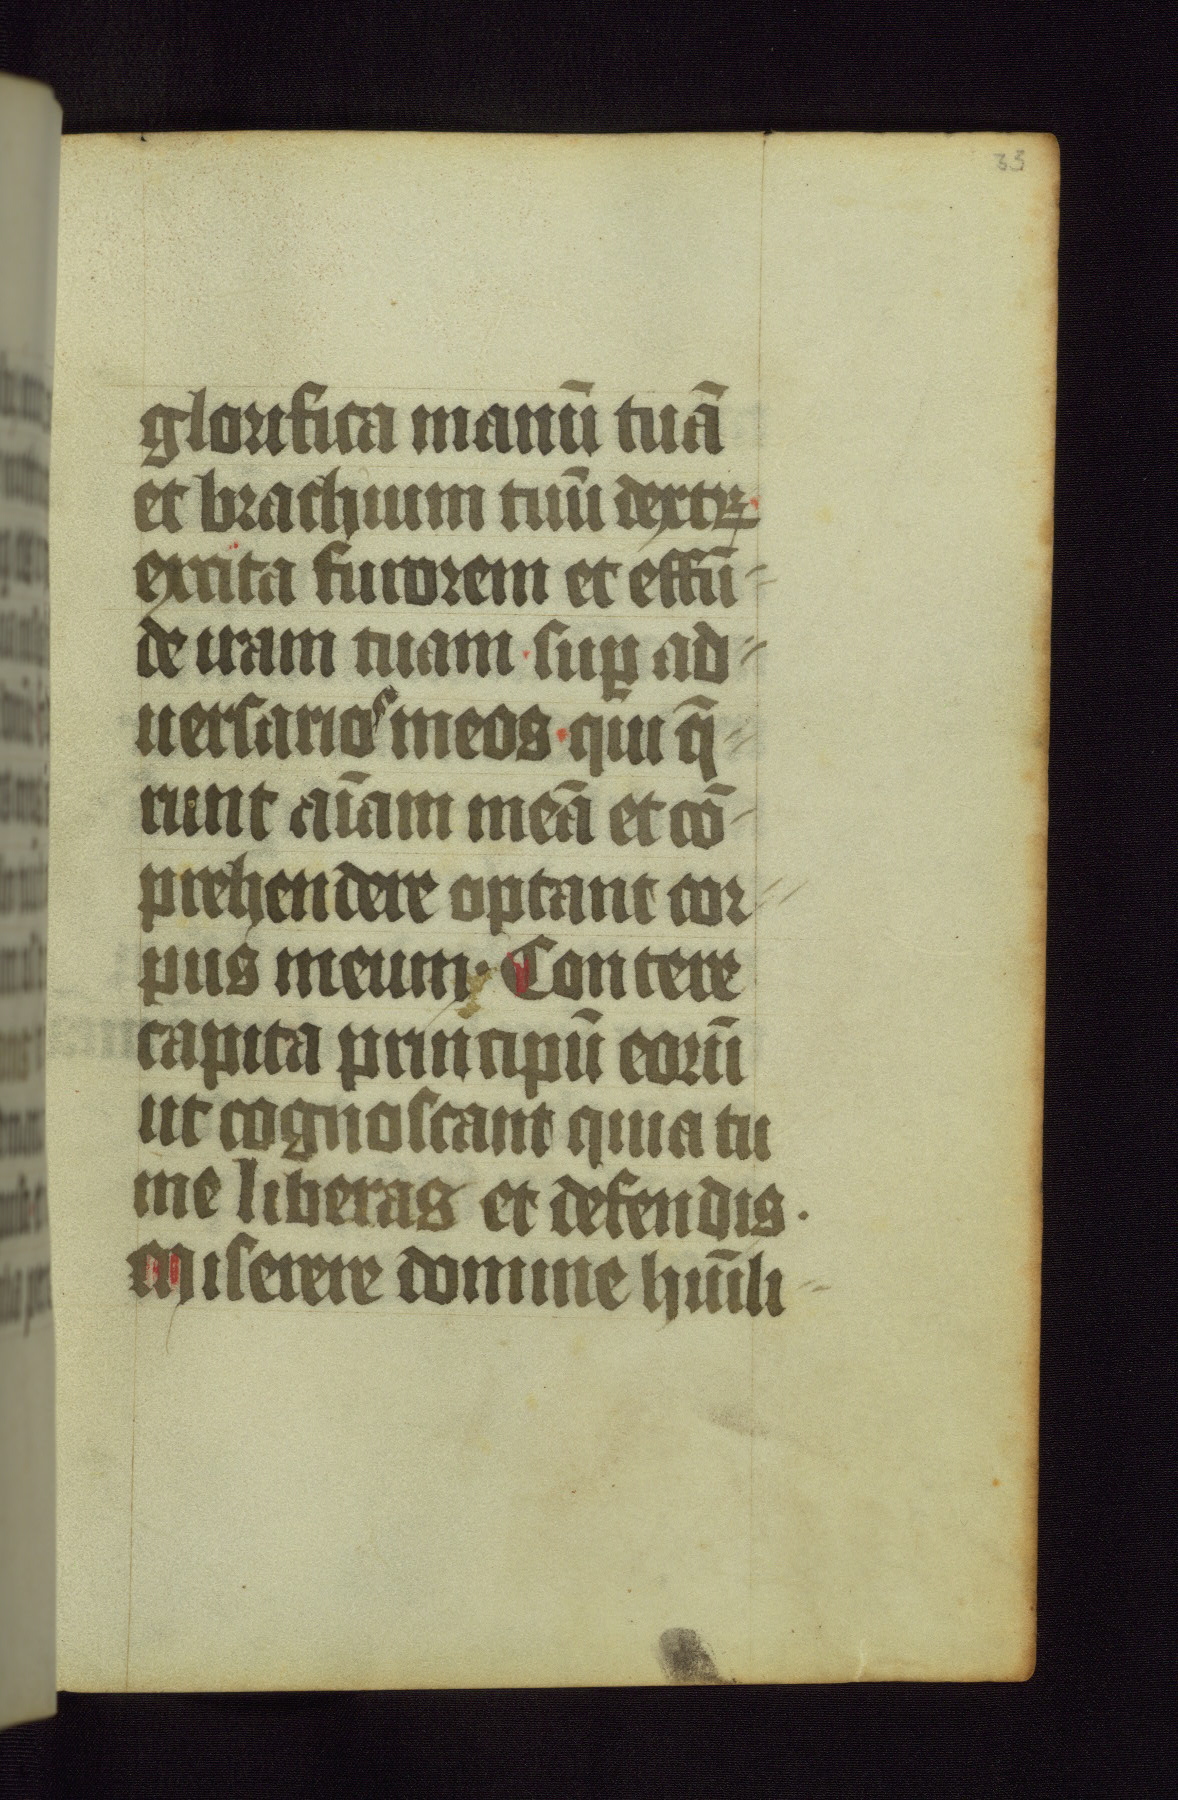 33
glorifica manū tuā
et brachium tuū dextꝝ
excita furorem et effū=
de iram tuam · suꝑ ad=
uersarios meos · qui q̄=
runt aīam meā et cō=
prehendere optant cor=
pus meum · Contere
capita principū eorū
ut cognoscant quia tu
me liberas et defendis ·
Miserere domine hūili=